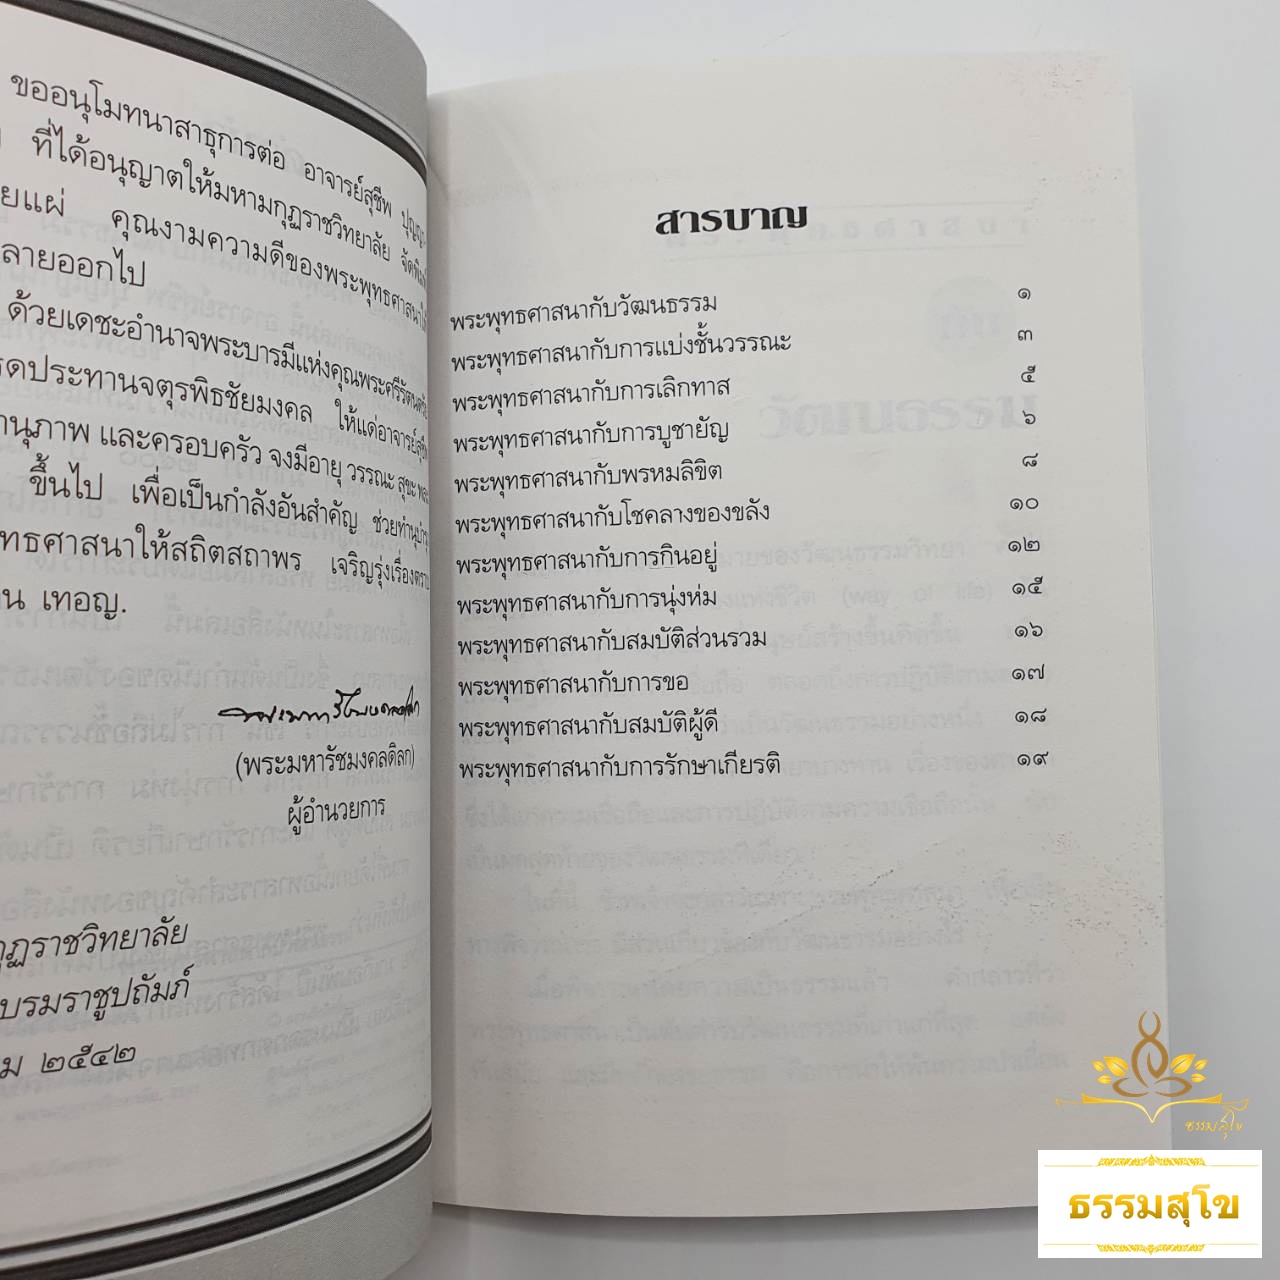 ขออนุโมทนาสาธุการต่อ อาจารย์สุชีพ
ที่ได้อนุญาตให้มหามกุฏราชวิทยาลัย จัดพิมพ์
ยแผ่ คุณงามความดีของพระพุทธศาสนาให้
ลายออกไป
ด้วยเดชะอำนาจพระบารมีแห่งคุณพระศรีรัตนตรัย
รดประทานจตุรพิธชัยมงคล ให้แด่อาจารย์สุชีพ
านุภาพ และครอบครัว จงมีอายุ วรรณะ สุขะ พละ
ขึ้นไป เพื่อเป็นกำลังอันสำคัญ ช่วยทำนุบำรุง
ทธศาสนาให้สถิตสถาพร เจริญรุ่งเรื่องตราบ
น เทอญ.
(พระมหารัชมงคลดิลก)
ผู้อำนวยการ
กุฏราชวิทยาลัย
บรมราชูปถัมภ์
ม ๒๕๔๒
สารบาญ
พระพุทธศาสนากับวัฒนธรรม ๑
พระพุทธศาสนากับการแบ่งชั้นวรรณะ ๓
พระพุทธศาสนากับการเลิกทาส ๕
พระพุทธศาสนากับการบูชายัญ ๖
พระพุทธศาสนากับพรหมลิขิต ๘
พระพุทธศาสนากับโชคลางของขลัง ๑๐
พระพุทธศาสนากับการกินอยู่ ๑๒
พระพุทธศาสนากับการนุ่งห่ม ๑๕
พระพุทธศาสนากับสมบัติส่วนรวม ๑๖
พระพุทธศาสนากับการขอ ๑๗
พระพุทธศาสนากับสมบัติผู้ดี ๑๘
พระพุทธศาสนากับการรักษาเกียรติ ๑๙
ธรรมสุโข
ธรรมสุโข